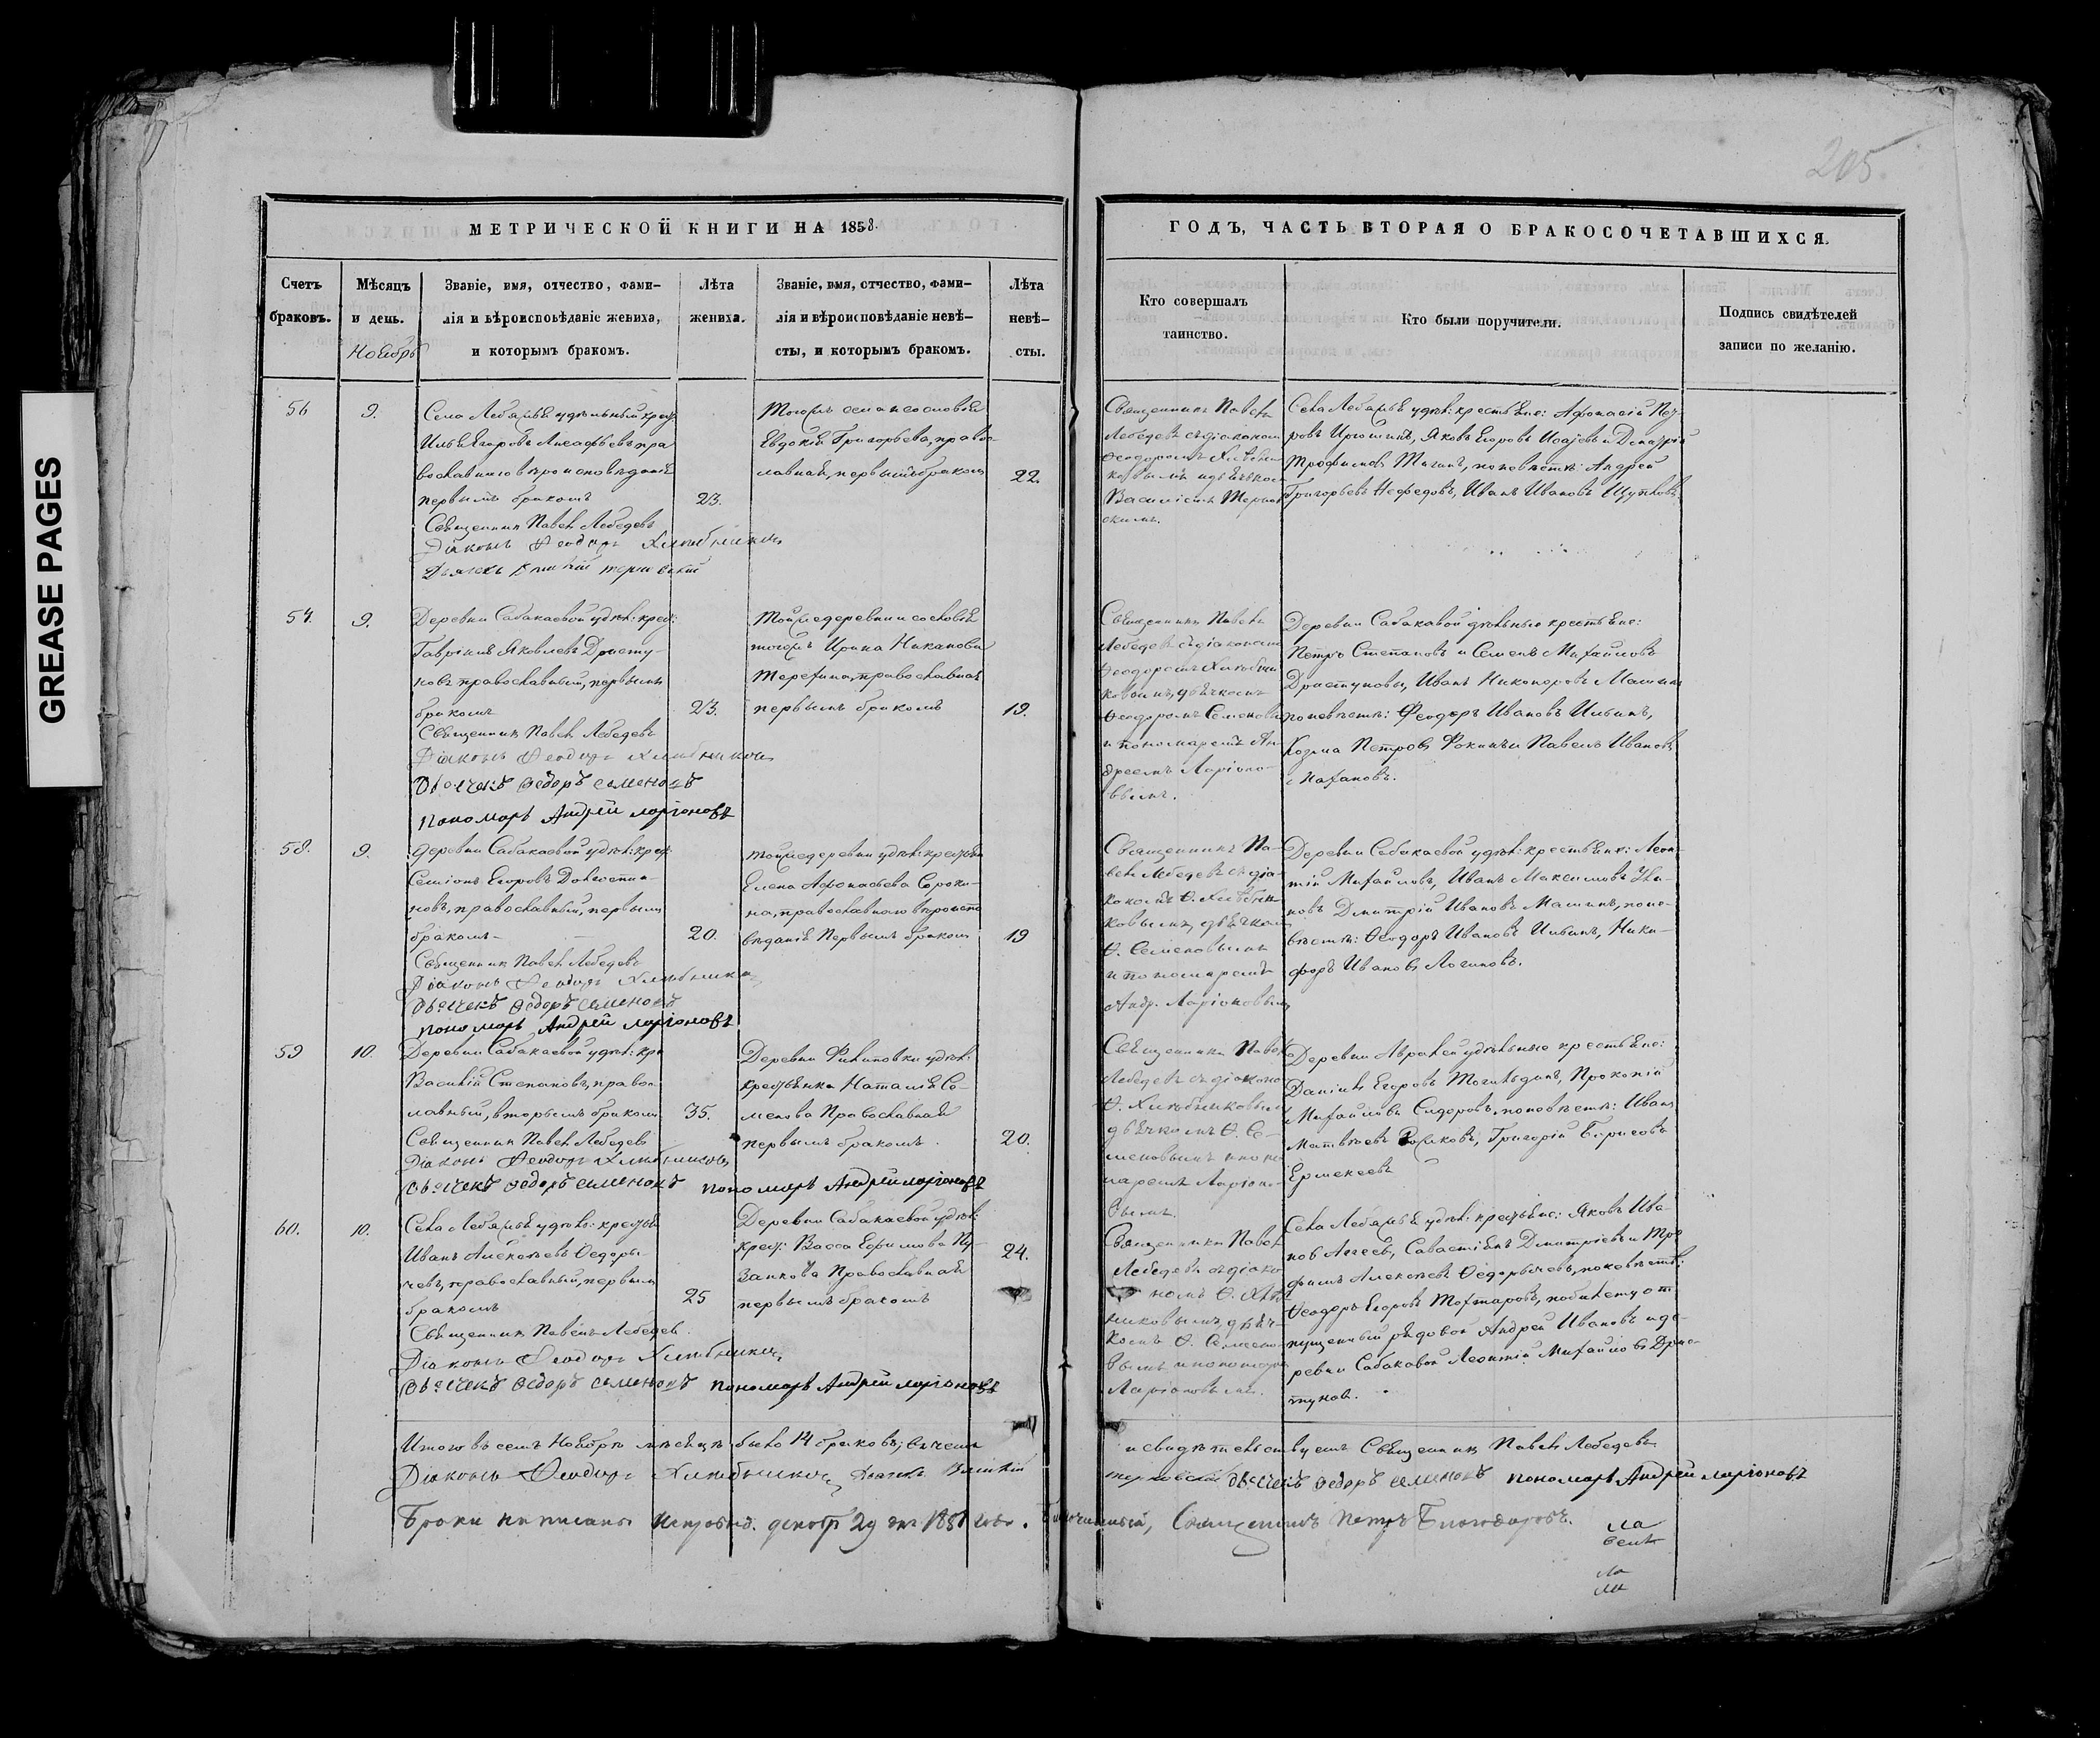 GREASE PAGES
205.
МЕТРИЧЕСКОЙ КНИГИ НА 1858.
ГОДЪ, ЧАСТЬ ВТОРАЯ О БРАКОСОЧЕТАВШИХСЯ.
Счетъ
браковъ.
Мѣсяцъ
и день.
Ноябрь
Званіе, имя, отчество, фами-
лія и вѣроисповѣданіе жениха,
и которымъ бракомъ.
Лѣта
жениха.
Званіе, имя, отчество, фами-
лія и вѣроисповѣданіе невѣ-
сты, и которымъ бракомъ.
Лѣта
невѣ-
сты.
Кто совершалъ
таинство.
Кто были поручители.
Подпись свидѣтелей
записи по желанію.
56
9.
Села Лебяжья удѣльный крес:
Илья Егоровъ пра
вославнаго вѣроисповѣданія
первымъ бракомъ
23.
Священникъ Павелъ Лебедевъ
Діаконъ Ѳеодоръ Хлебниковъ
Тогожъ села и сословія
Евдокія Григорьева, правос-
лавная, первымъ бракомъ
22.
Священникъ Павелъ
Лебедевъ съ діакономъ
Ѳеодоромъ Хлѣбни
ковымъ и дьячкомъ
Василіемъ Тернов
скимъ.
Села Лебяжья удѣл: крестьяне: Афонасій
Яковъ Егоровъ и Дмитрій
Трофимовъ по невѣстѣ: Андрей
Григорьевъ Нефедовъ, Иванъ Ивановъ
57.
9.
Деревни Сабакаевой удѣл: крес:
Гавріилъ Яковлевъ Драсту-
новъ православный, первымъ
бракомъ
23.
Священникъ Павелъ Лебедевъ
Діаконъ Ѳеодоръ Хлебниковъ
Дьячекъ Ѳедоръ Семеновъ
Пономарь Андрей Ларіоновъ
Тойже деревни и сословія
тогожъ Ирина Никанова
православная
первымъ бракомъ
19.
Священникъ Павелъ
Лебедевъ съ діакономъ
Ѳеодоромъ Хлѣбни
ковымъ, дьячкомъ
Ѳеодоромъ Семеновы
и пономаремъ Ан
дреемъ Ларіоно-
вымъ.
Деревни Сабакавой удѣльные крестьяне:
Петръ Степановъ и Семенъ Михайловъ
Драстуновы, Иванъ Никоноровъ Машинъ
по невѣстѣ: Феодоръ Ивановъ Ильинъ,
Козма Петровъ Фокинъ и Павелъ Ивановъ
58.
9.
Деревни Сабакаевой удѣл: крес:
Семіонъ Егоровъ
новъ, православный, первымъ
бракомъ
20.
Священникъ Павелъ Лебедевъ
Діаконъ Ѳеодоръ Хлебниковъ
Дьячекъ Ѳедоръ Семеновъ
Пономарь Андрей Ларіоновъ
Тойже деревни удѣл: крестьян
Елена Афонасьева Сороки-
на, православнаго вѣроиспо
вѣданія Первымъ бракомъ
19
Священникъ Па-
велъ Лебедевъ съ діа-
кономъ Ѳ. Хлѣбни
ковымъ, дьячкомъ
Ѳ. Семеновымъ
и пономаремъ
Андр. Ларіоновымъ
Деревни Сабакаевой удѣл: крестьяне: Леон-
тій Михайловъ, Иванъ Максимовъ
новъ Дмитрій Ивановъ Машинъ, поне-
вѣстѣ: Ѳеодоръ Ивановъ Ильинъ, Ники-
форъ Ивановъ Логиновъ.
59
10.
Деревни Сабакаевой удѣл: кре
Василій Степановъ, правос
лавный, вторымъ бракомъ
35.
Священникъ Павелъ Лебедевъ
Діаконъ Ѳеодоръ Хлебниковъ
Дьячекъ Ѳедоръ Семеновъ Пономарь Андрей Ларіоновъ
Деревни Филиповки удѣл:
крестьянка Наталія Се-
менова Православная
первымъ бракомъ.
20.
Священникъ Павелъ
Лебедевъ съ діаконо
Ѳ. Хлѣбниковымъ
дьячкомъ Ѳ. Се-
меновымъ и поно
маремъ Ларіоно-
вымъ.
Деревни удѣльные крестьяне:
Даніилъ Егоровъ Прокопій
Михайловъ Сидоровъ, поневѣстѣ: Иванъ
Матвѣевъ Григорій Борисовъ
Ермекеевъ
60.
10.
Села Лебяжья удѣл: крестьян
Иванъ Алексѣевъ Ѳедоры-
чевъ, православный, первымъ
бракомъ
25
Священникъ Павелъ Лебедевъ
Діаконъ Ѳеодоръ Хлебниковъ
Дьячекъ Ѳедоръ Семеновъ Пономарь Андрей Ларіоновъ
Деревни Сабакаевой удѣл:
крес: Васса Ефимова Пу-
занкова Православная
первымъ бракомъ
24.
Священникъ Павел
Лебедевъ съ діако
номъ Ѳ. Хлѣб
никовымъ, дьяч-
комъ Ѳ. Семено
вымъ и пономаре
Ларіоновымъ.
Села Лебяжья удѣл: крестьяне: Яковъ Ива-
новъ Агеевъ, Савастіянъ Дмитріевъ и Тро
фимъ Алексѣевъ Ѳедорычевъ, поневѣстѣ:
Ѳеодоръ Егоровъ Тохтаровъ, побилету от
пущенный рядовой Андрей Ивановъ и де-
ревни Сабакавой Леонтій Михайловъ Драс-
туновъ.
Итого въ семъ Ноябрѣ мѣсяцѣ было 14 браковъ; въ чемъ
и свидѣтельствуемъ Священникъ Павелъ Лебедевъ
Діаконъ Ѳеодоръ Хлебниковъ Дьячекъ Василій
Терновскій Дьячекъ Ѳедоръ Семеновъ Пономарь Андрей Ларіоновъ
Браки писаны исправно. декабр 29 дня 1858 года. Благочинный, Священникъ Петръ